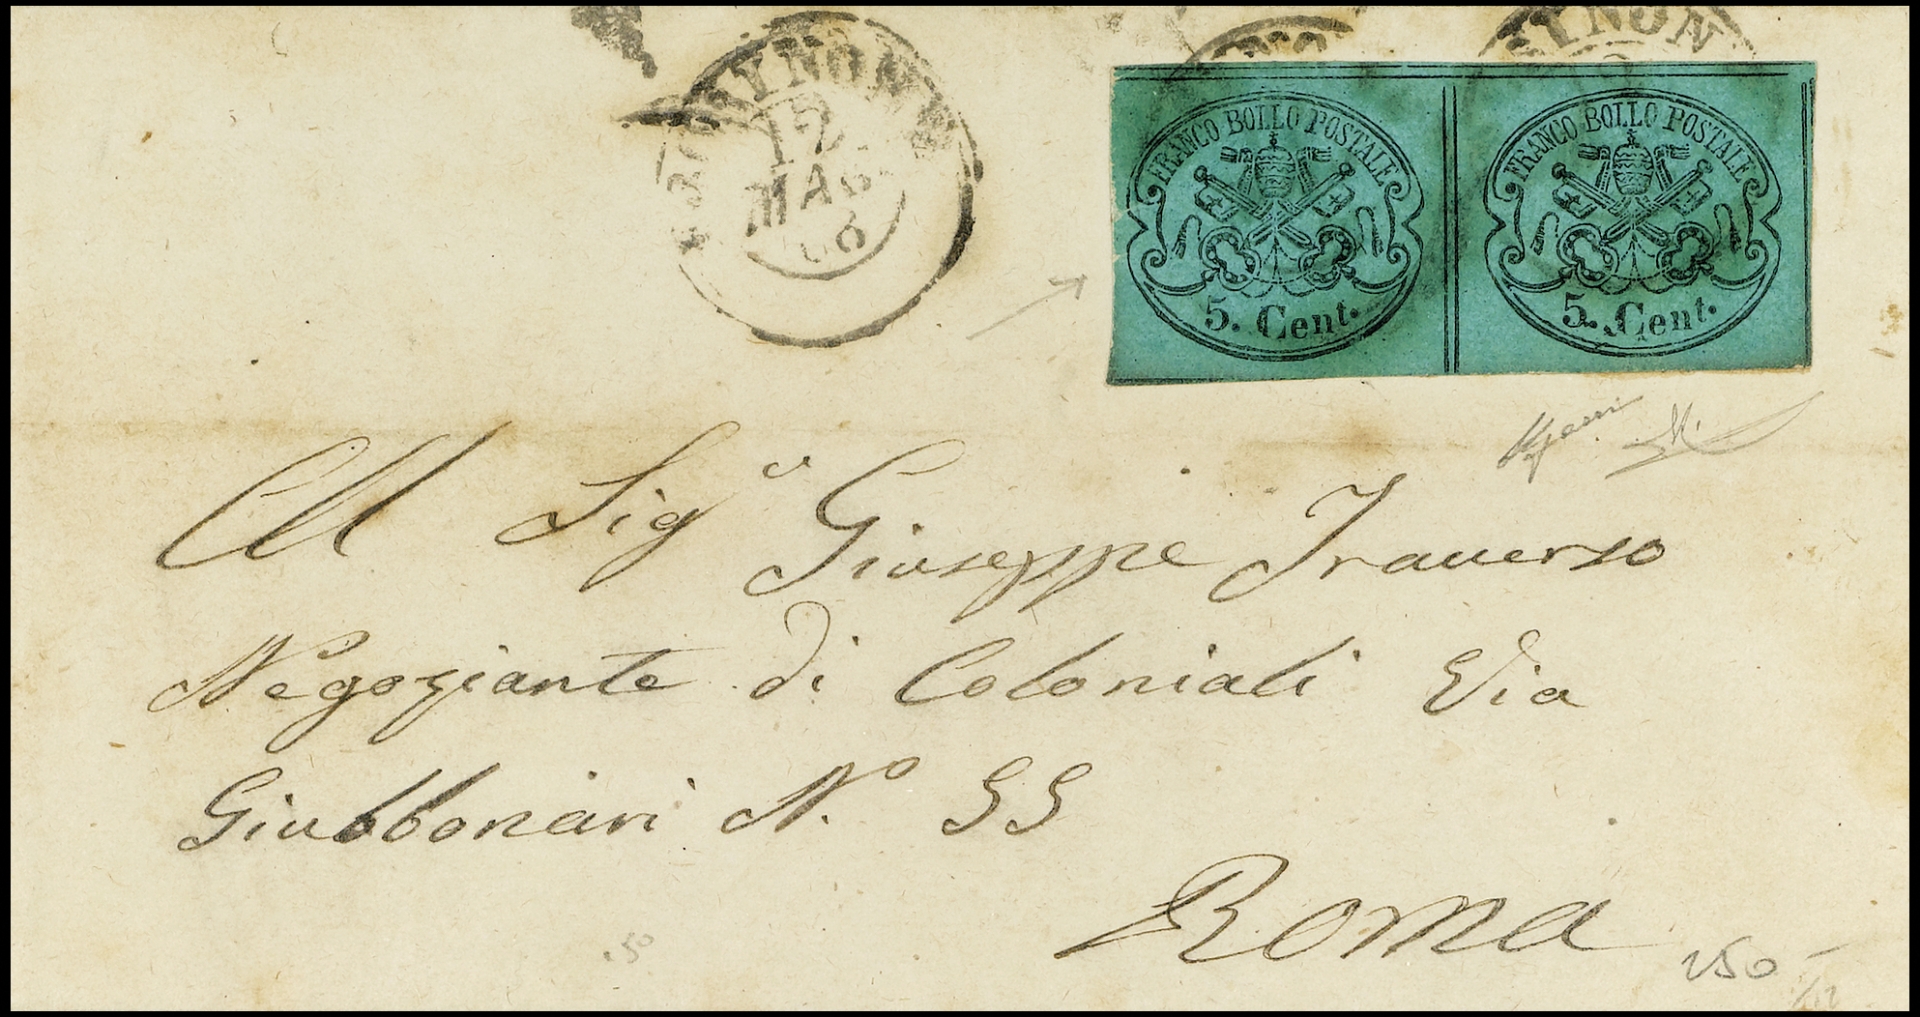 12
MAG
FRANCO BOLLO POSTALE
5. Cent.
FRANCO BOLLO POSTALE
5. Cent.
All Sigr Giuseppe Traverso
Negoziante di Coloniali Via
Giubbonari No 55
Roma